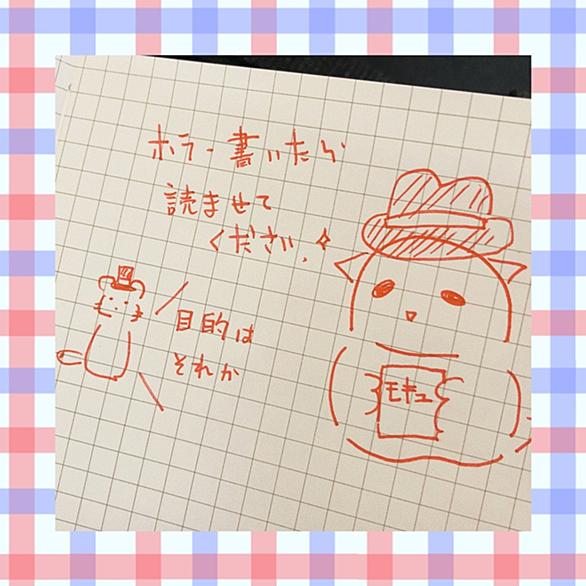 ホラー書いたら
読ませて
ください
目的は
それか
モキュ